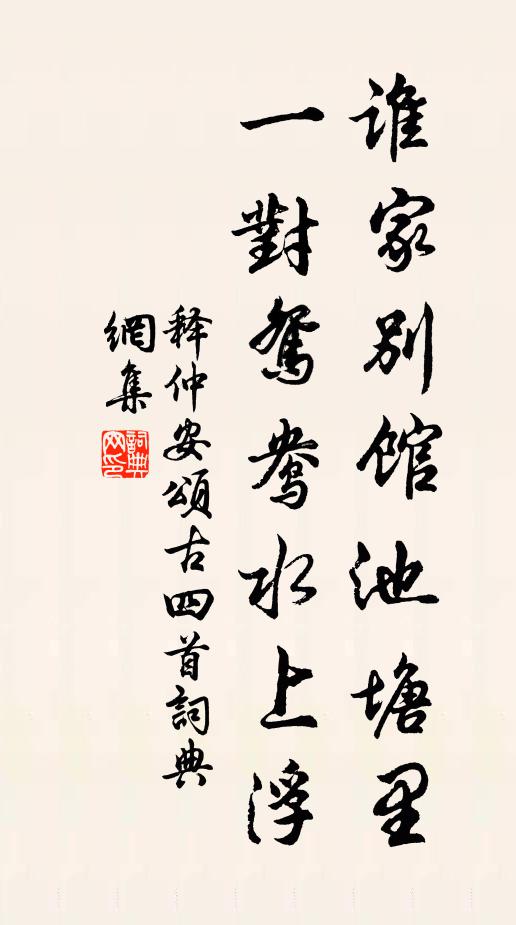 谁家别馆池塘里
一對鴛鴦水上浮
释仲安頌古四首詞典
網集
詞典網印